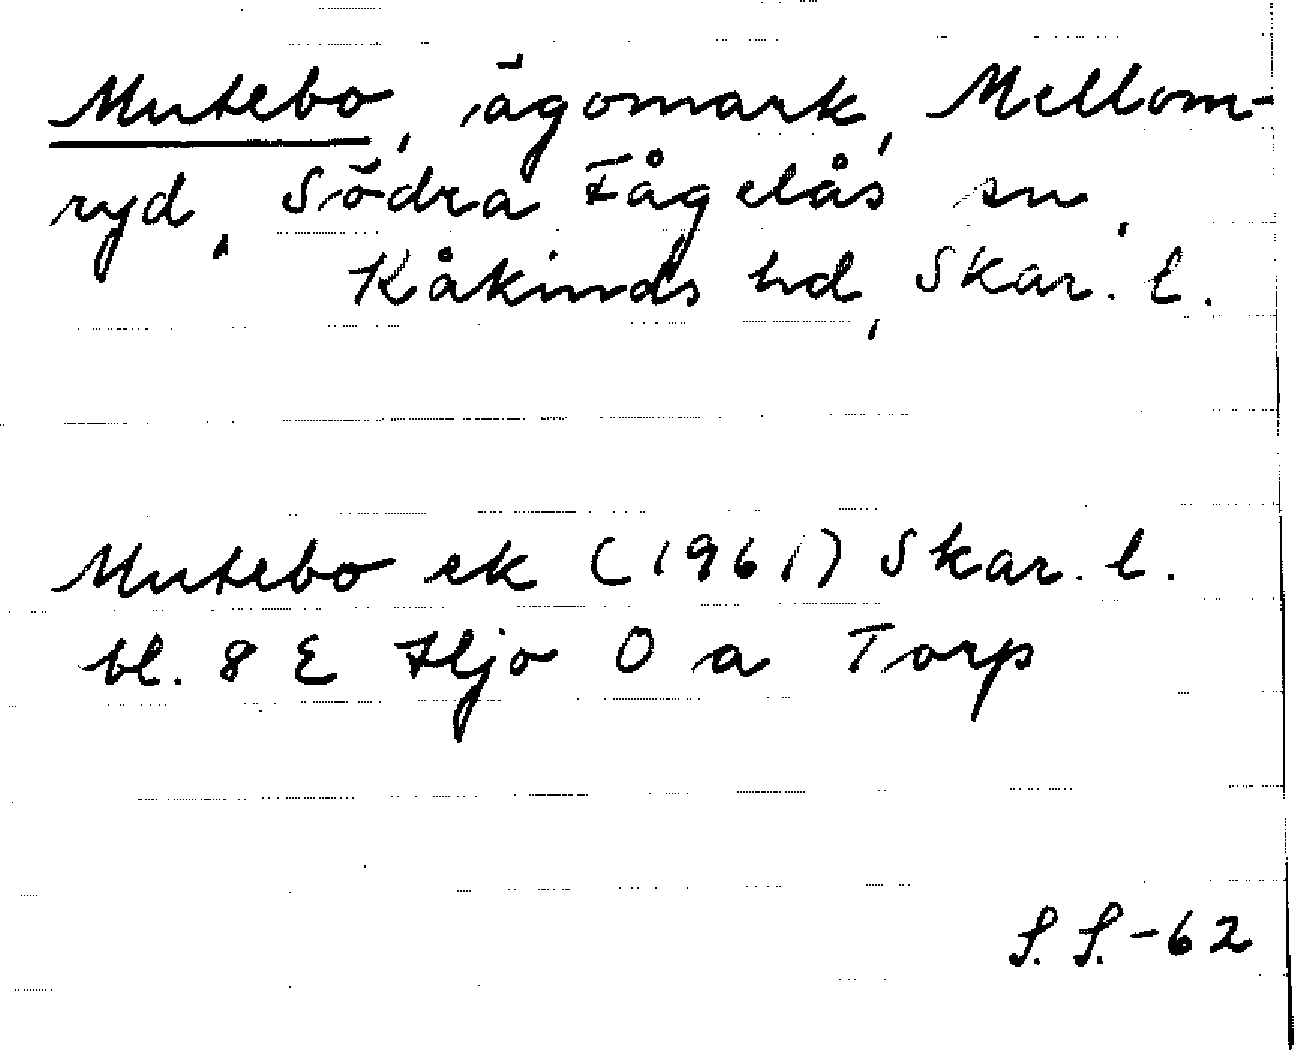 Mutebo, ägomark, Mellom-
ryd, Södra Fågelås sn,
Kåkinds hd, Skar. l.
Mutebo ek (1961) Skar. l.
bl. 8 E Hjo 0 a Torp
S. S. -62